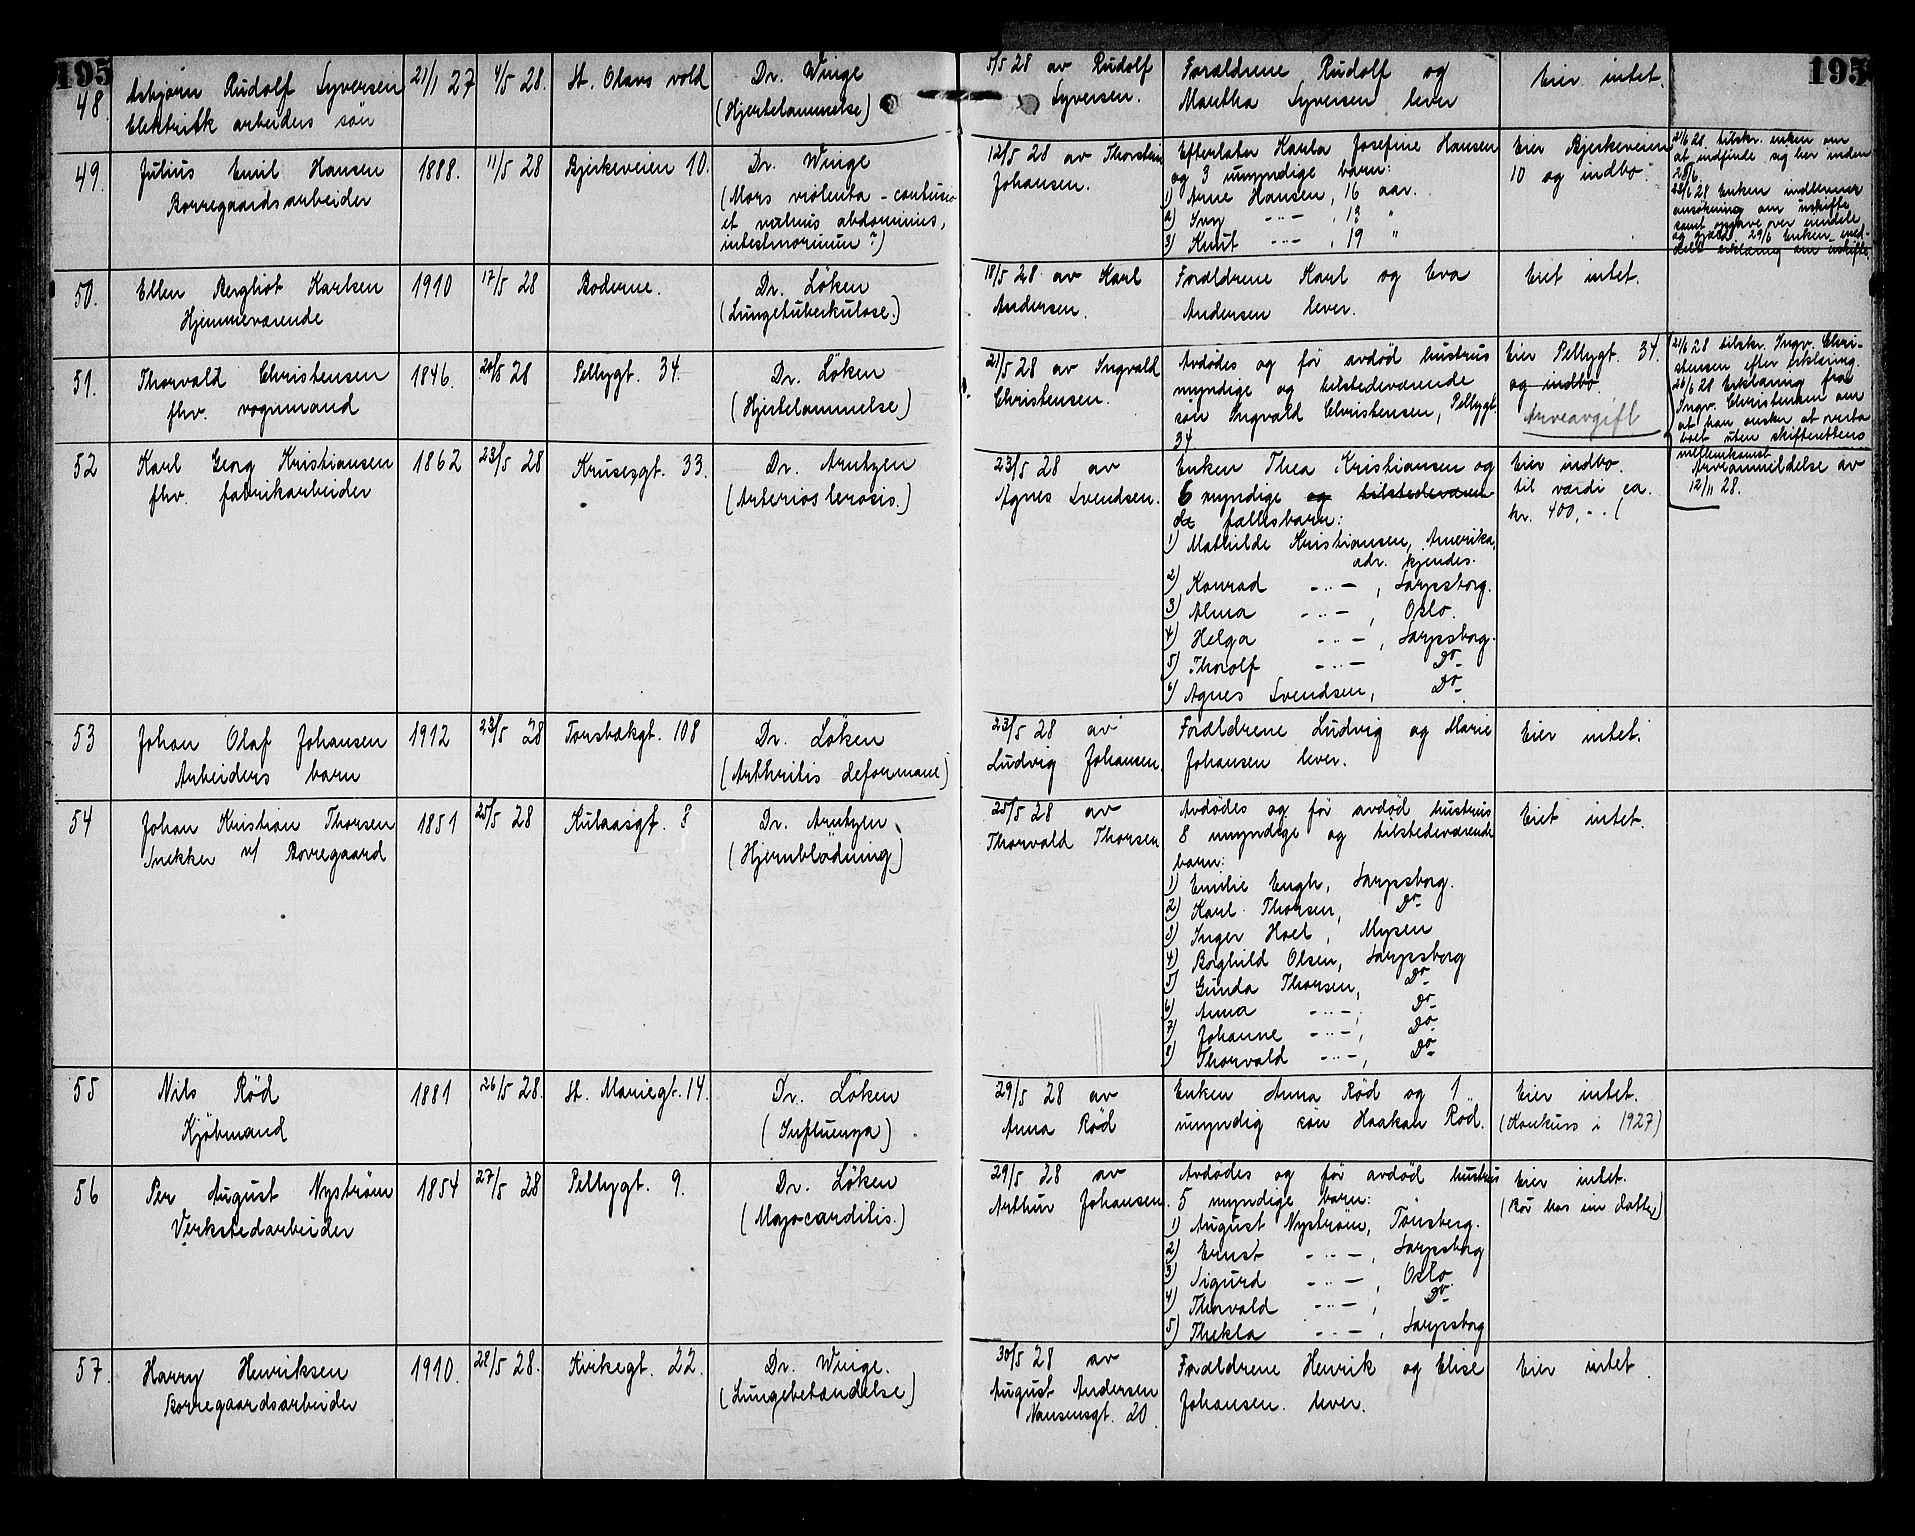 195
195
48. Asbjørn Rudolf Syversen 21/1 27 4/5 28. St. Olavs vold Dr. Winge 5/5 28 av Rudolf Forældrene Rudolf og Eier intet.
Elektrisk arbeiders søn (Hjertelammelse) Syversen. Martha Syversen lever
49. Julius Emil Hansen 1888. 11/5 28 Bjerkeveien 10. Dr. Winge 12/5 28 av Thorstein Efterlater Karla Josefine Hansen Eier Bjerkeveien
Borregaardsarbeider (Mors violenta - contusio Johansen. og 3 umyndige barn: 10 og indbo
et vulnus abdominis, 1) Arne Hansen, 16 aar.
intestinorum?) 2) Ivry -"- , 13 "
3) Knut -"- , 19 "
21/6 28 tilskr. enken om
at indfinde sig her inden
28/6.
28/6 28 Enken indleverer
ansøkning om uskifte
samt opgave over eiendele
og gjæld. 29/6 Enken med-
delt erklæring om uskifte.
50. Ellen Bergliot Karlsen 1910 17/5 28 Boderne. Dr. Löken 18/5 28 av Karl Forældrene Karl og Eva Eiet intet.
Hjemmeværende (Lungetuberkulose.) Andersen. Andersen lever.
51. Thorvald Christensen 1846. 20/5 28 Pellygt. 34 Dr. Löken 21/5 28 av Ingvald Avdødes og før avdød hustrus Eier Pellygt. 34.
fhv. vognmand (Hjertelammelse) Christensen. myndige og tilstedeværende og indbo
søn Ingvald Christensen, Pellygt. Arveavgift
34
21/6 28 tilskr. Ingv. Chri-
stensen efter erklæring.
26/6 28 Erklæring fra
Ingv. Christensen om
at han ønsker at overta
boet uten skifterettens
mellemkomst
Arveanmeldelse av
12/11 28.
52 Karl Georg Kristiansen 1862 23/5 28 Krusesgt. 33. Dr. Arntzen 23/5 28 av Enken Thea Kristiansen og Eier indbo.
fhv. fabrikarbeider (Arteriosclerosis.) Agnes Svendsen. 6 myndige og tilstedeværen til værdi ca.
de fællesbarn: kr. 400,--
1) Mathilde Kristiansen, Amerika,
adr. kjendes.
2) Konrad -"- , Sarpsborg.
3) Alma -"- , Oslo.
4) Helga -"- , Sarpsborg.
5) Thorolf -"- Do
6) Agnes Svendsen, Do
53 Johan Olaf Johansen 1912 23/5 28 Torsbækgt. 108 Dr. Löken 23/5 28 av Forældrene Ludvig og Marie Eier intet.
Arbeiders barn (Arthritis deformane) Ludvig Johansen. Johansen lever.
54 Johan Kristian Thorsen 1851 25/5 28 Kulaasgt. 8 Dr. Arntzen 25/5 28 av Avdødes og før avdød hustrus Eiet intet.
Snekker v/ Borregaard (Hjernblødning) Thorvald Thorsen 8 umyndige og tilstedeværende
barn:
1) Emilie Engh, Sarpsborg.
2) Karl Thorsen, Do
3) Inger Hoel, Mysen
4) Borghild Olsen, Sarpsborg
5) Gunda Thorsen, Do
6) Anna -"- , Do
7) Johanne -"- , Do
8) Thorvald -"- , Do
55 Nils Rød 1881 26/5 28. St. Mariegt. 14. Dr. Löken 29/5 28 av Enken Anna Rød og 1 Eier intet.
Kjøbmand (Influenza) Anna Rød umyndig søn Haakon Rød. (Konkurs i 1927)
56 Per August Nyström 1854 27/5 28 Pellygt. 9. Dr. Löken 29/5 28 av Avdødes og før avdød hustrus Eier intet.
Verkstedarbeider (Myocarditis.) Arthur Johansen. 5 myndige barn: (Bor hos sin datter)
1) August Nyström, Tønsberg.
2) Ernst -"- , Sarpsborg
3) Sigurd -"- , Oslo.
4) Thorvald -"- , Do
5) Thekla -"- , Sarpsborg
57. Harry Henriksen 1910. 28/5 28. Kirkegt. 22. Dr. Winge. 30/5 28 av Forældrene Henrik og Elise Eier intet.
Borregaardsarbeider (Lungebetændelse) August Andersen Johansen. lever.
Nansensgt. 20